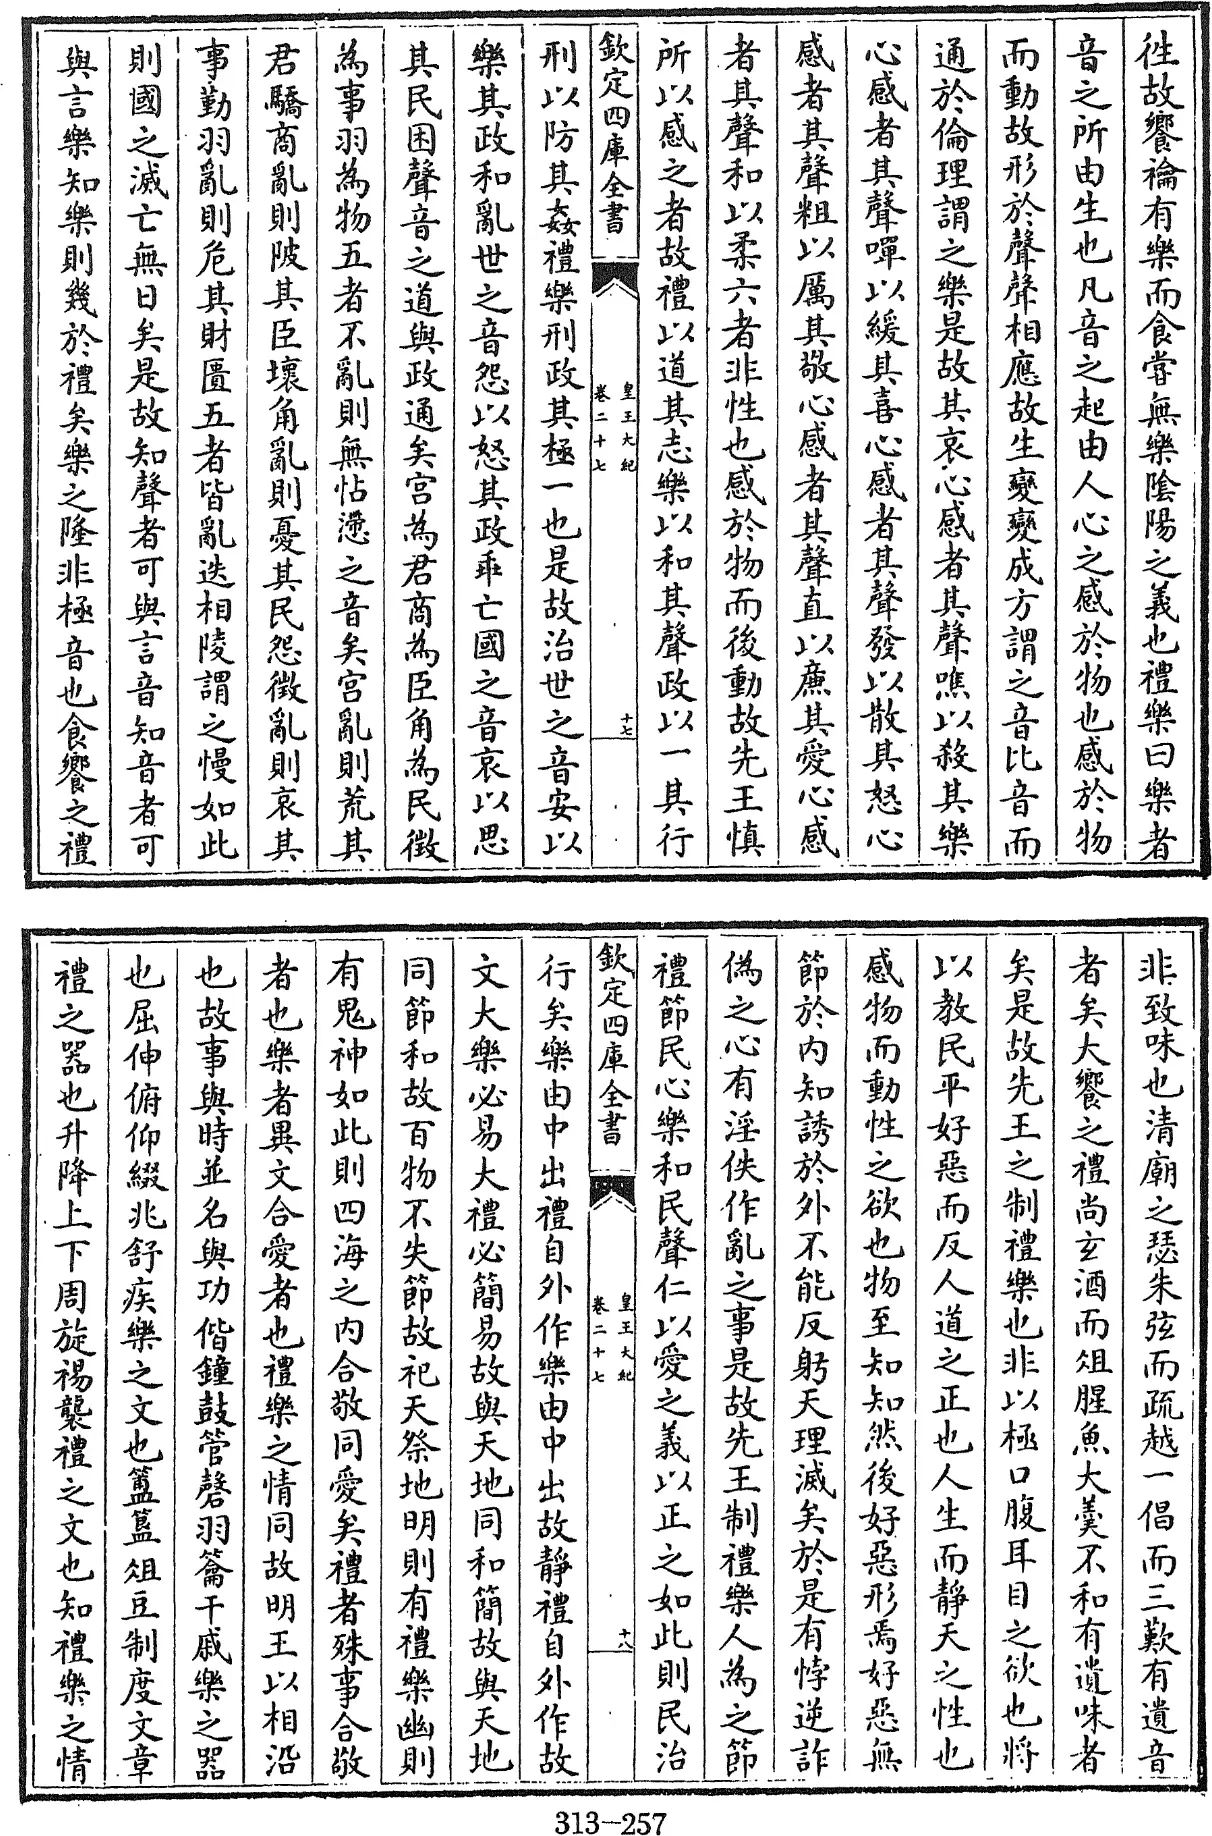 徃故饗禴有樂而食嘗無樂陰陽之義也禮樂曰樂者
音之所由生也凡音之起由人心之感於物也感於物
而動故形於聲聲相應故生變變成方謂之音比音而
通於倫理謂之樂是故其哀心感者其聲噍以殺其樂
心感者其聲嘽以緩其喜心感者其聲發以散其怒心
感者其聲粗以厲其敬心感者其聲直以廉其愛心感
者其聲和以柔六者非性也感於物而後動故先王慎
所以感之者故禮以道其志樂以和其聲政以一其行
欽定四庫全書
皇王大紀
卷二十七
十七
刑以防其姦禮樂刑政其極一也是故治世之音安以
樂其政和亂世之音怨以怒其政乖亡國之音哀以思
其民困聲音之道與政通矣宮為君商為臣角為民徵
為事羽為物五者不亂則無怗懘之音矣宮亂則荒其
君驕商亂則陂其臣壞角亂則憂其民怨徵亂則哀其
事勤羽亂則危其財匱五者皆亂迭相陵謂之慢如此
則國之滅亡無日矣是故知聲者可與言音知音者可
與言樂知樂則幾於禮矣樂之隆非極音也食饗之禮
非致味也清廟之瑟朱弦而疏越一倡而三歎有遺音
者矣大饗之禮尚玄酒而俎腥魚大羹不和有遺味者
矣是故先王之制禮樂也非以極口腹耳目之欲也將
以教民平好惡而反人道之正也人生而靜天之性也
感物而動性之欲也物至知知然後好惡形焉好惡無
節於內知誘於外不能反躬天理滅矣於是有悖逆詐
偽之心有淫佚作亂之事是故先王制禮樂人為之節
禮節民心樂和民聲仁以愛之義以正之如此則民治
欽定四庫全書
皇王大紀
卷二十七
十八
行矣樂由中出禮自外作樂由中出故靜禮自外作故
文大樂必易大禮必簡易故與天地同和簡故與天地
同節和故百物不失節故祀天祭地明則有禮樂幽則
有鬼神如此則四海之內合敬同愛矣禮者殊事合敬
者也樂者異文合愛者也禮樂之情同故明王以相沿
也故事與時並名與功偕鐘鼓管磬羽籥干戚樂之器
也屈伸俯仰綴兆舒疾樂之文也簠簋俎豆制度文章
禮之器也升降上下周旋裼襲禮之文也知禮樂之情
313-257